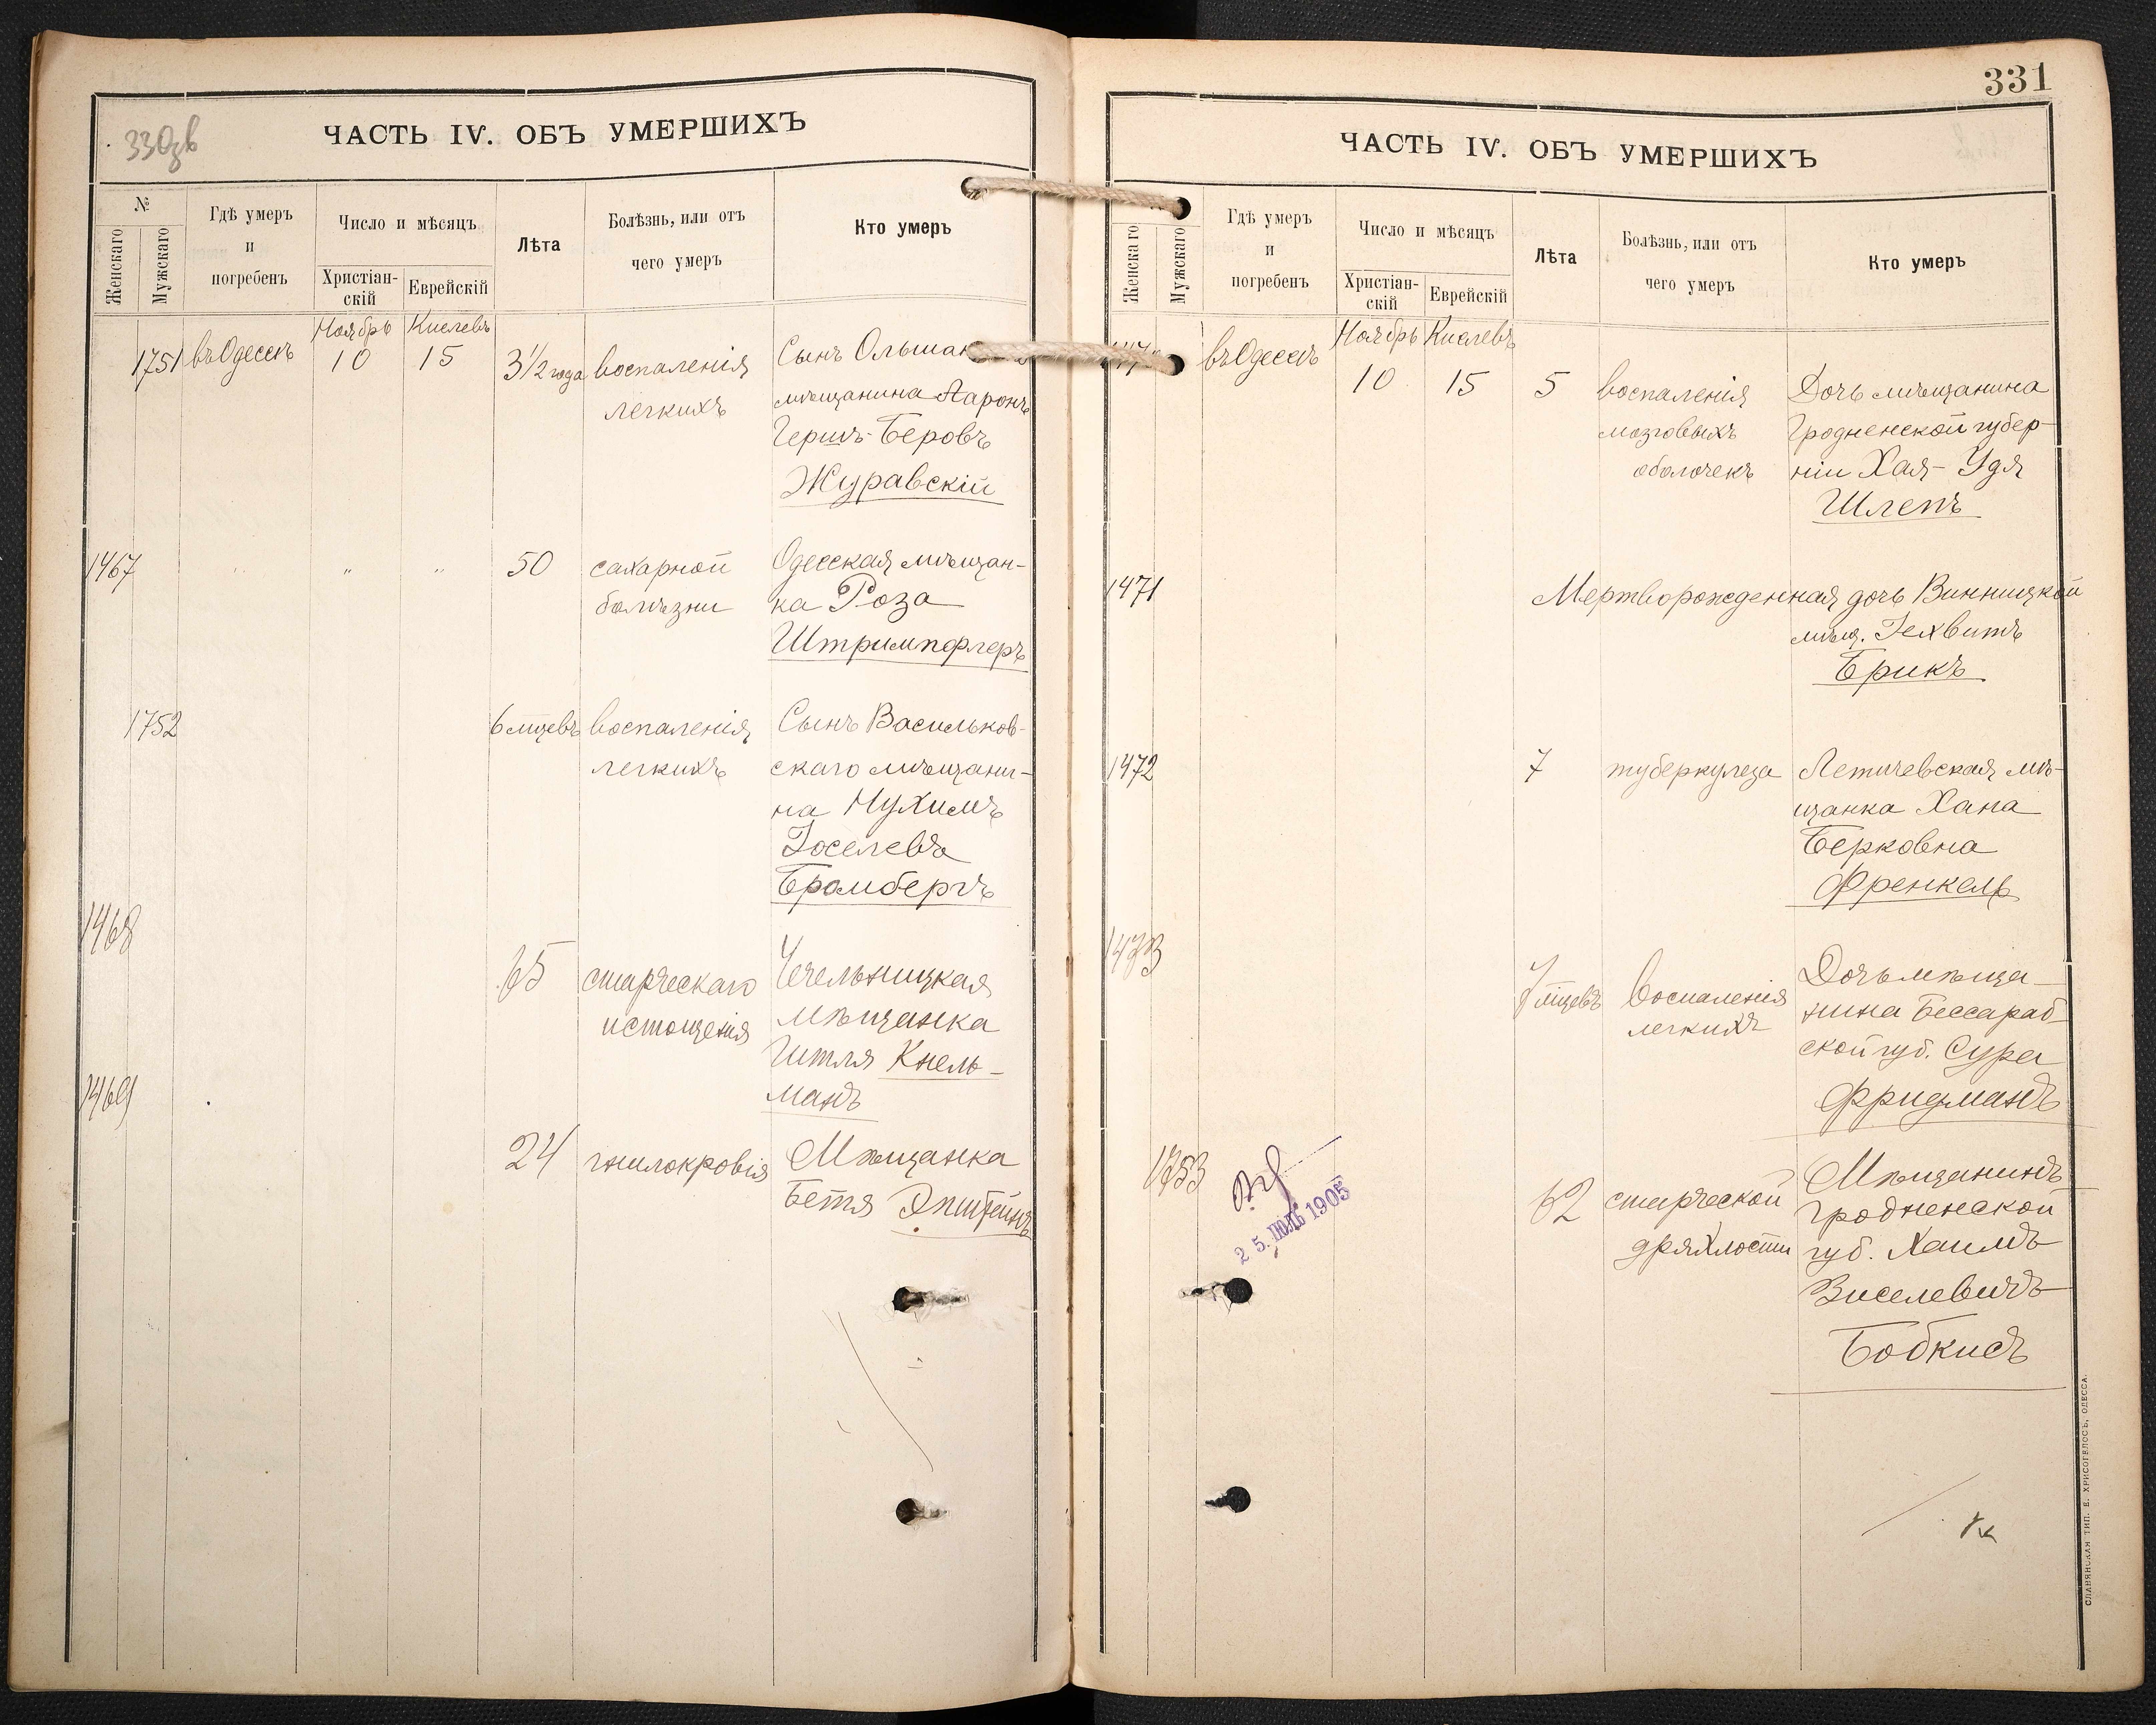 330зв
ЧАСТЬ IV. ОБЪ УМЕРШИХЪ
№
Женскаго
Мужскаго
Гдѣ умеръ
и
погребенъ
Число и мѣсяцъ
Христіан-
скій
Еврейскій
Лѣта
Болѣзнь, или отъ
чего умеръ
Кто умеръ
Ноябрь Кислевъ
1751 въ Одессѣ 10 15 3 1/2 года воспаленія
легкихъ
Сынъ
мѣщанина Ааронъ
Гершъ-Беровъ
Журавскій
1467 " " " 50 сахарной
болѣзни
Одесская мѣщан-
ка Роза
Штримпфлеръ
1752 6 мцевъ воспаленія
легкихъ
Сынъ Васильков-
скаго мѣщани-
на Нухимъ
Іоселевъ
Бромбергъ
1468
65 старческаго
истощенія
Чечельницкая
мѣщанка
Гитля Кнель-
манъ
1469
24 гнилокровія
Мѣщанка
Бетя Эпштейнъ
331
ЧАСТЬ IV. ОБЪ УМЕРШИХЪ
Женскаго
Мужскаго
Гдѣ умеръ
и
погребенъ
Число и мѣсяцъ
Христіан-
скій
Еврейскій
Лѣта
Болѣзнь, или отъ
чего умеръ
Кто умеръ
Ноябрь Кислевъ
въ Одессѣ 10 15 5 воспаленія
мозговыхъ
оболочекъ
Дочь мѣщанина
Гродненской губер-
ніи Хая-Удя
Шлепъ
1471 Мертворожденная дочь Винницкой
мѣщ.
Брикъ
1472 7 туберкулеза
Летичевская мѣ-
щанка Хана
Берковна
Френкель
1473
7 мцевъ воспаленія
легкихъ
Дочь мѣща-
нина Бессараб-
ской губ. Сура
Фридманъ
1753
25. ІЮЛЬ 1905
62 старческой
дряхлости
Мѣщанинъ
Гродненской
губ. Хаимъ
Зиселевичъ
Бобкисъ
СЛАВЯНСКАЯ ТИП. Е. ХРИСОГЕЛОСЪ, ОДЕССА.